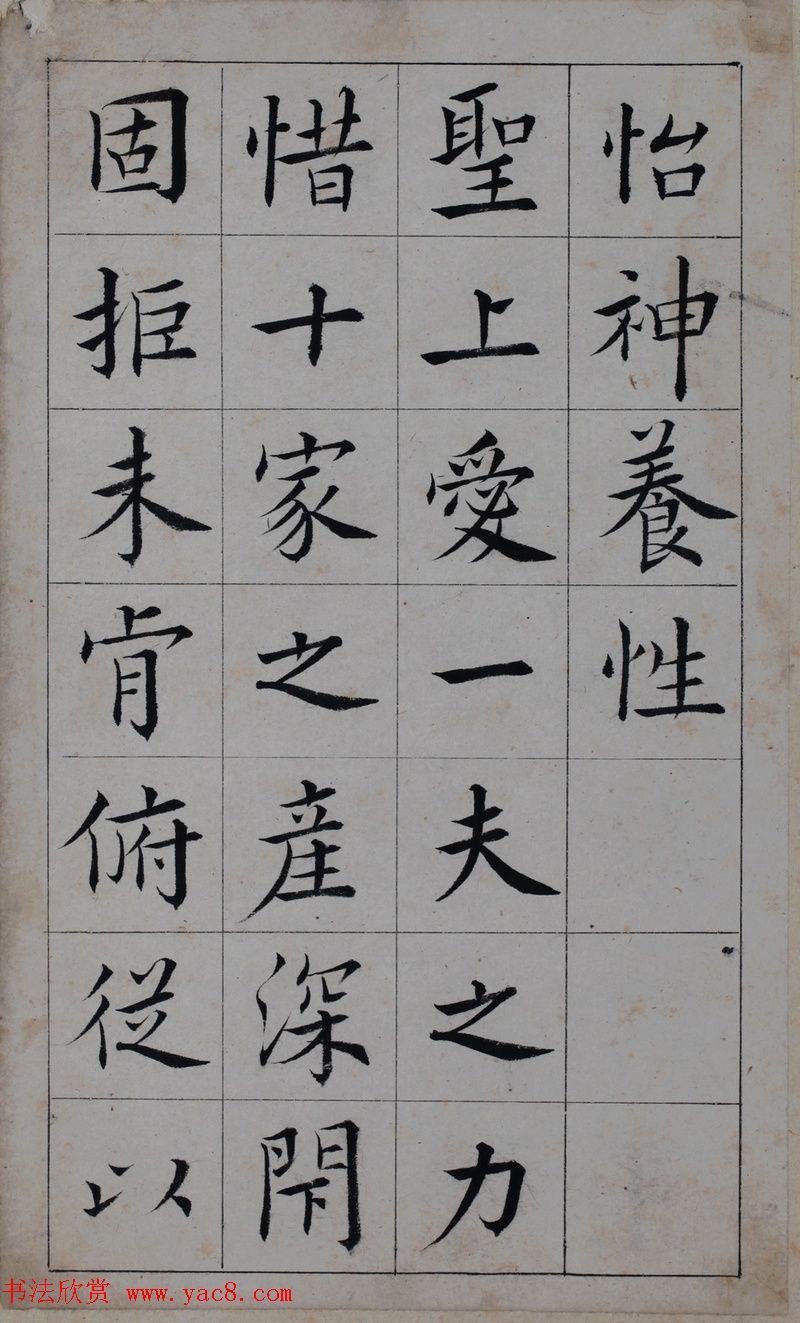 怡神養性
聖上愛一夫之力
惜十家之產深閇
固拒未肯俯從以
书法欣赏 www.yac8.com